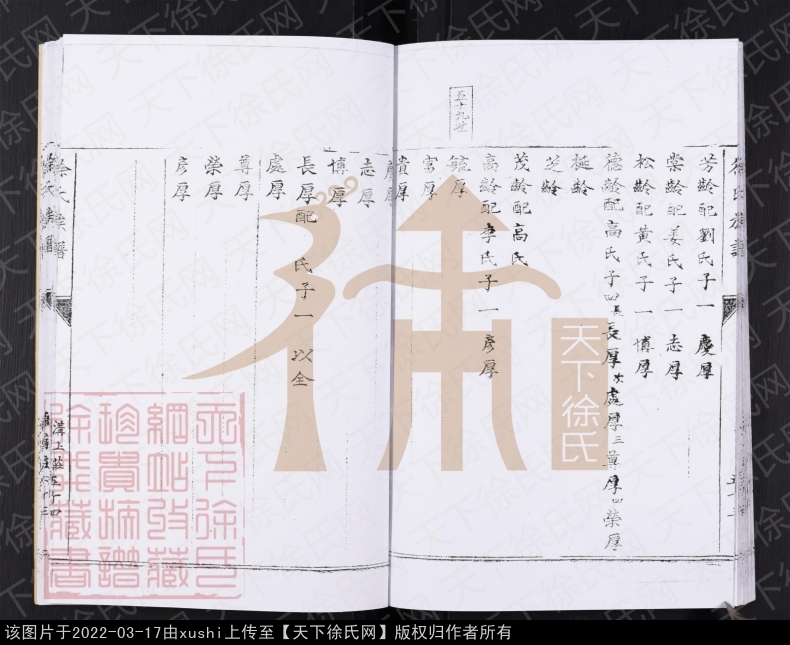 徐氏族譜
芳齡配劉氏子一 慶厚
棠齡配姜氏子一 志厚
松齡配黃氏子一 博厚
德齡配高氏子四長長厚次處厚三貴厚四榮厚
挺齡
芝齡
茂齡配高氏
高齡配李氏子一 彥厚
五十九世
毓厚
富厚
貴厚
慶厚
志厚
博厚
長厚配 氏子一 以全
處厚
尊厚
榮厚
彥厚
徐氏族譜
天下徐氏
天下徐氏
網站收藏
珍貴族譜
徐氏藏書
天下徐氏网
该图片于2022-03-17由xushi上传至【天下徐氏网】版权归作者所有